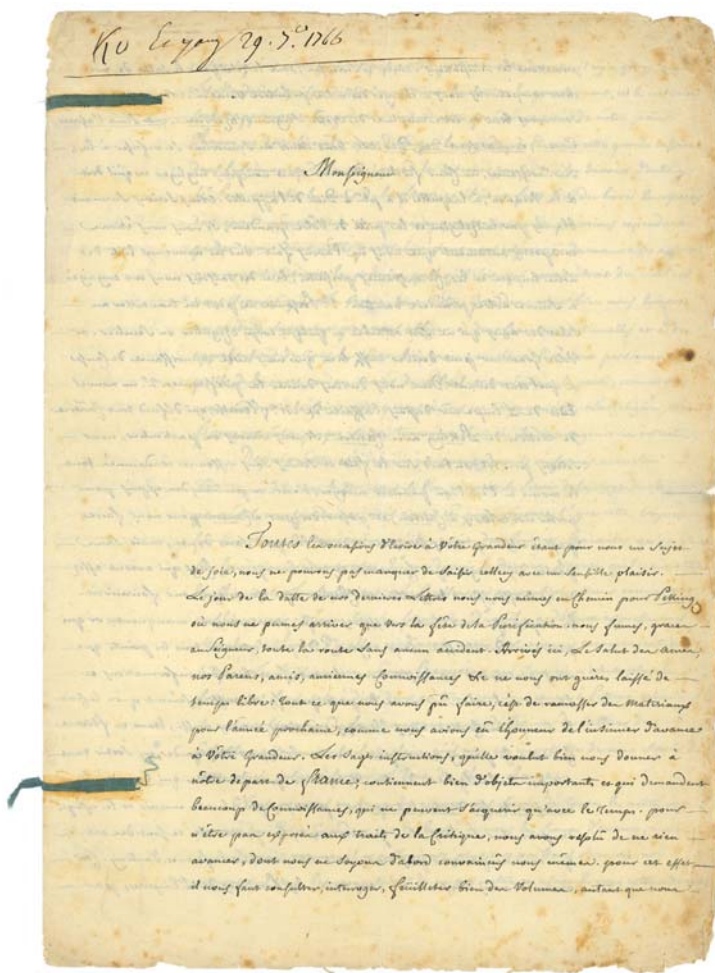 Ko 29. 7.e 1766
Monseigneur
Toutes les occasions d'Ecrire à Vôtre Grandeur étant pour nous un sujet
de Joie, nous ne pouvons pas manquer de saisir celle cy avec un sensible plaisir.
Le jour de la datte de nos dernieres Lettres nous nous mimes en Chemin pour Petking
où nous ne pumes arriver que vers la fête de la Purification. nous fumes, graces
au Seigneur, toute la route Sans aucun accident. Arrivés ici, Le Salut des Ames,
nos Parens, amis, anciennes Connoissances &c ne nous ont guères laissé de
temps libre: tout ce que nous avons pû faire, c'est de ramasser des Matériaux
pour l'année prochaine, comme nous avions eû l'honneur de l'intimer d'avance
à Vôtre Grandeur. Les Sages instructions, qu'elle voulut bien nous donner à
nôtre départ de France, contiennent bien d'objets importants et qui demandent
beaucoup de Connoissances, qui ne peuvent s'acquerir qu'avec le temps. pour
n'être pas exposés aux traits de la Critique, nous avons résolû de ne rien
avancer, dont nous ne Soyons d'abord convaincus nous mêmes. pour cet effet
il nous faut consulter, interroger, feuilleter bien des Volumes, autant que nous